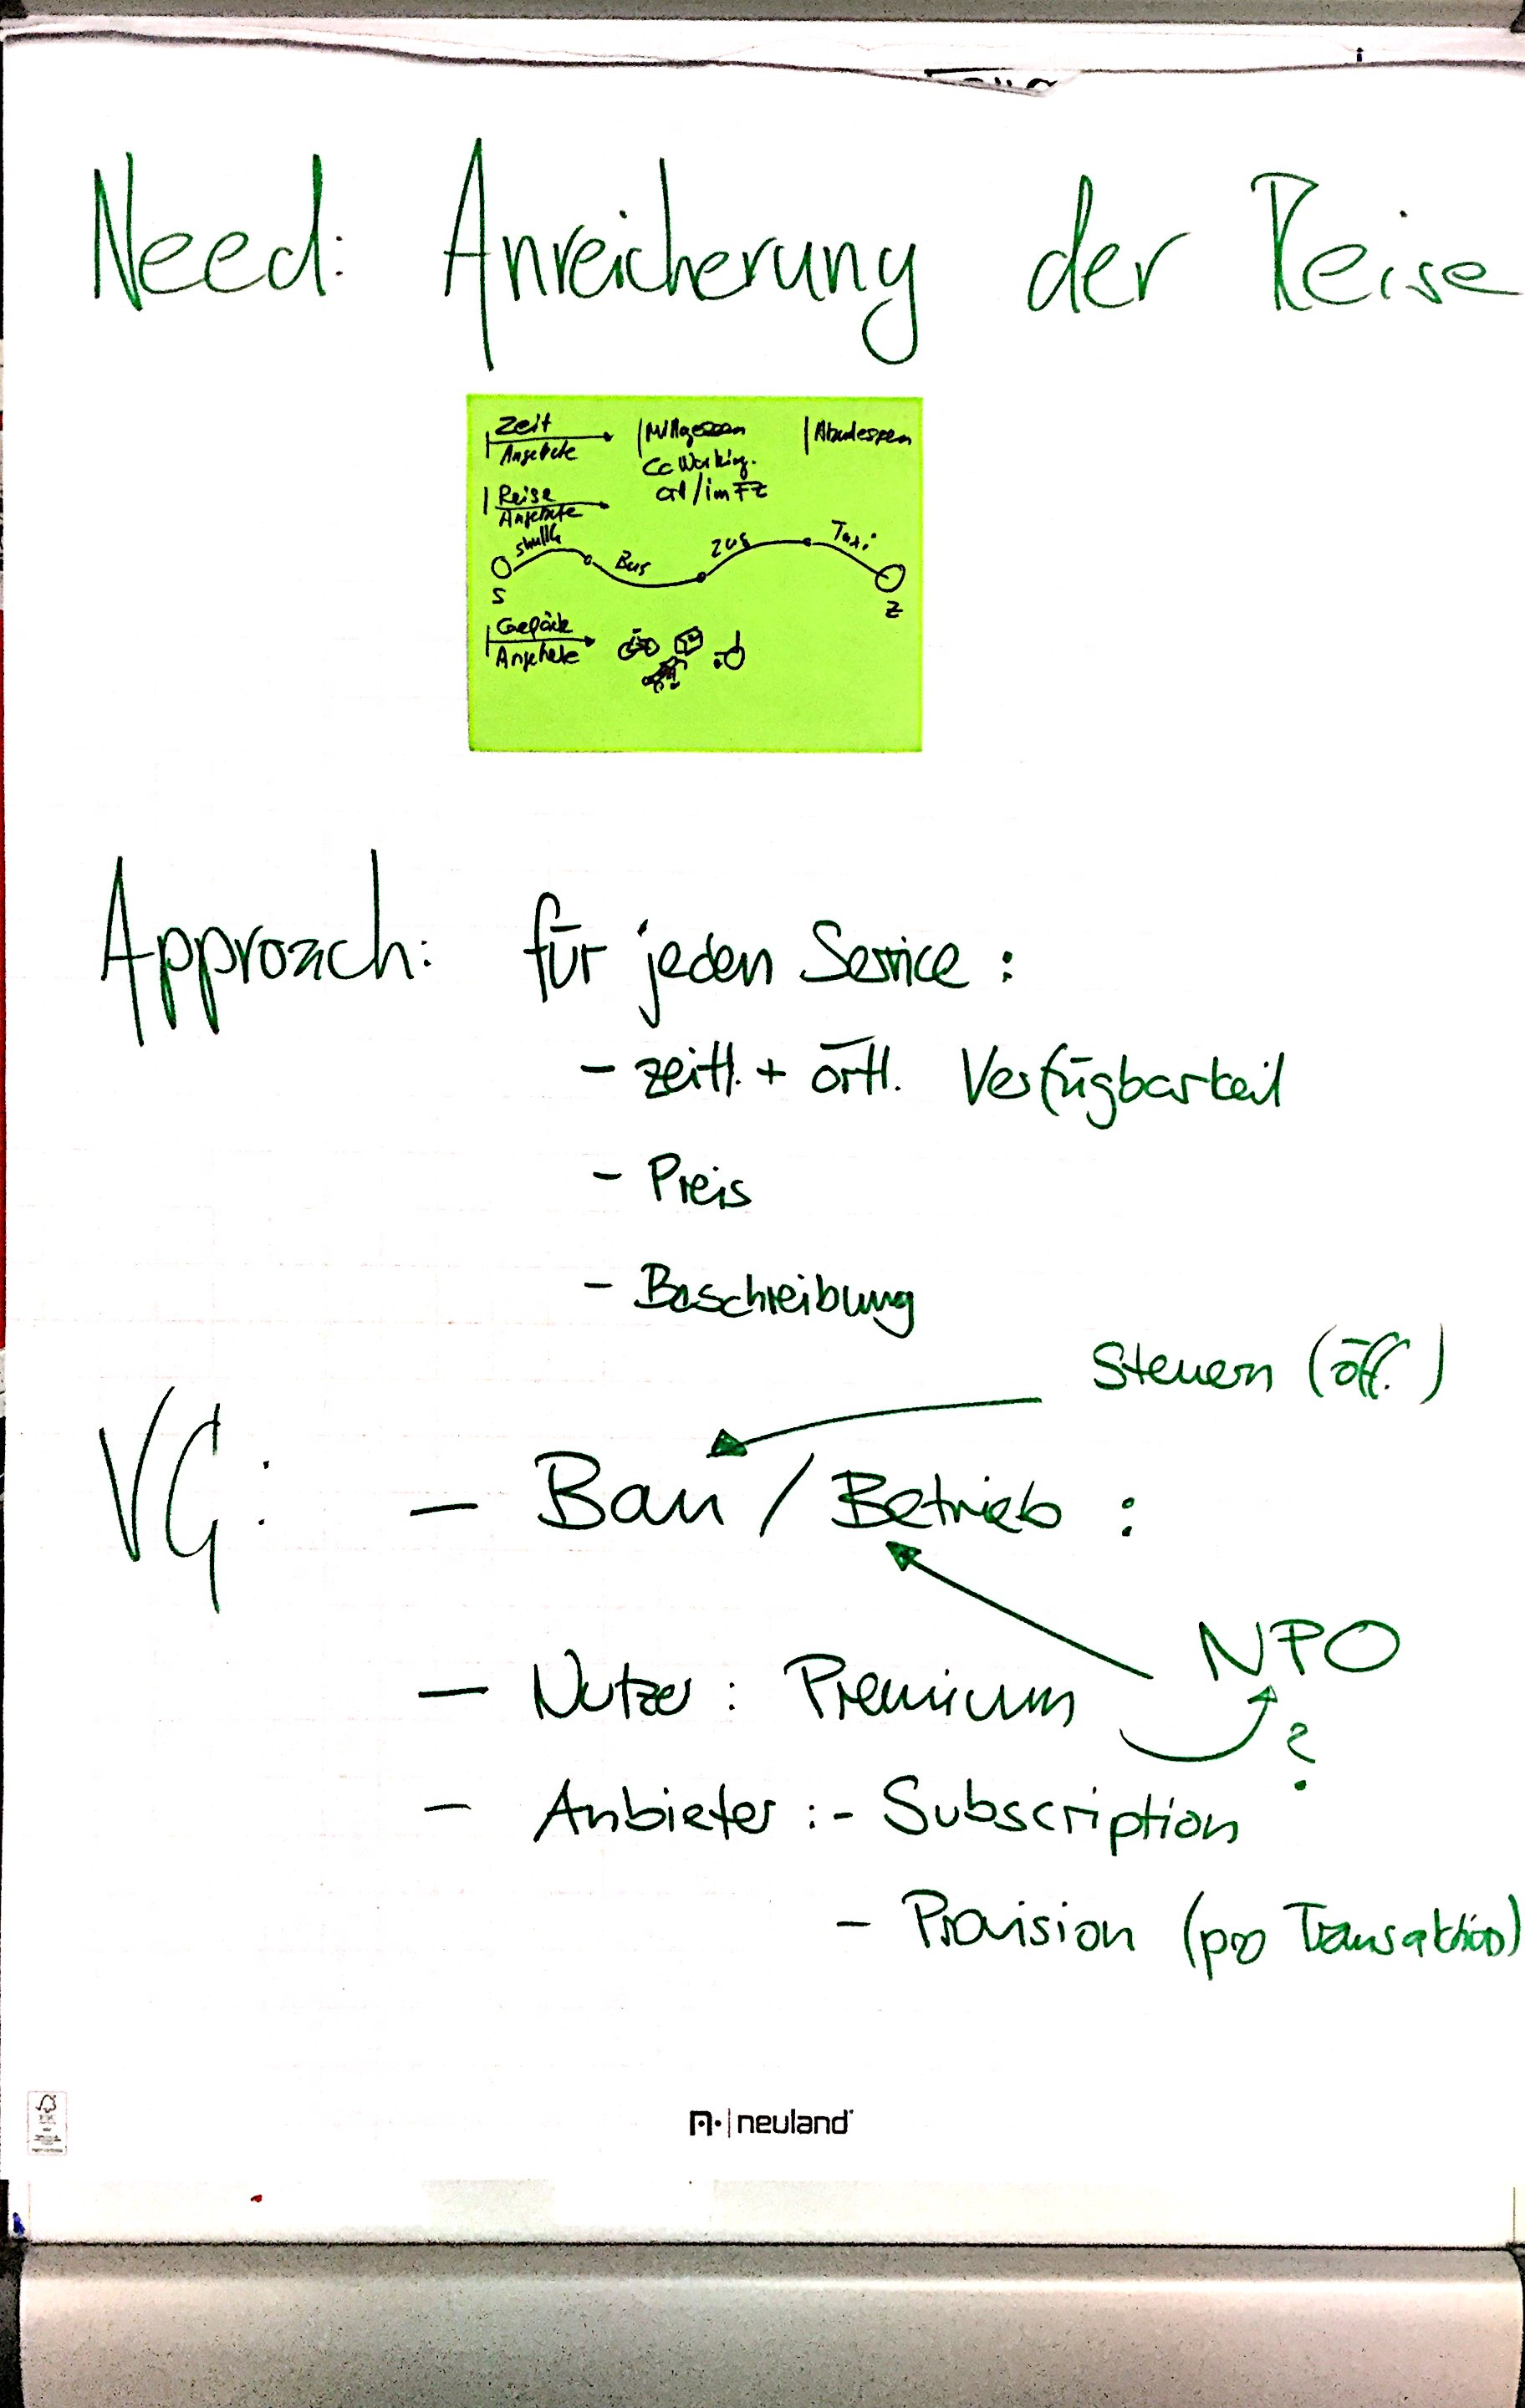 Need: Anreicherung der Reise
Zeit
Angebote
Mittagessen
CoWorking.
ort/im FZ
Abendessen
Reise
Angebote
shuttle
Bus
Zug
Taxi
S
Z
Gepäck
Angebote
Approach: für jeden Service:
- zeitl. + örtl. Verfügbarkeit
- Preis
- Beschreibung
Steuern (öff.)
VG: - Bau / Betrieb :
NPO
- Nutzer : Premium
?
- Anbieter : - Subscription
- Provision (pro Transaktion)
neuland